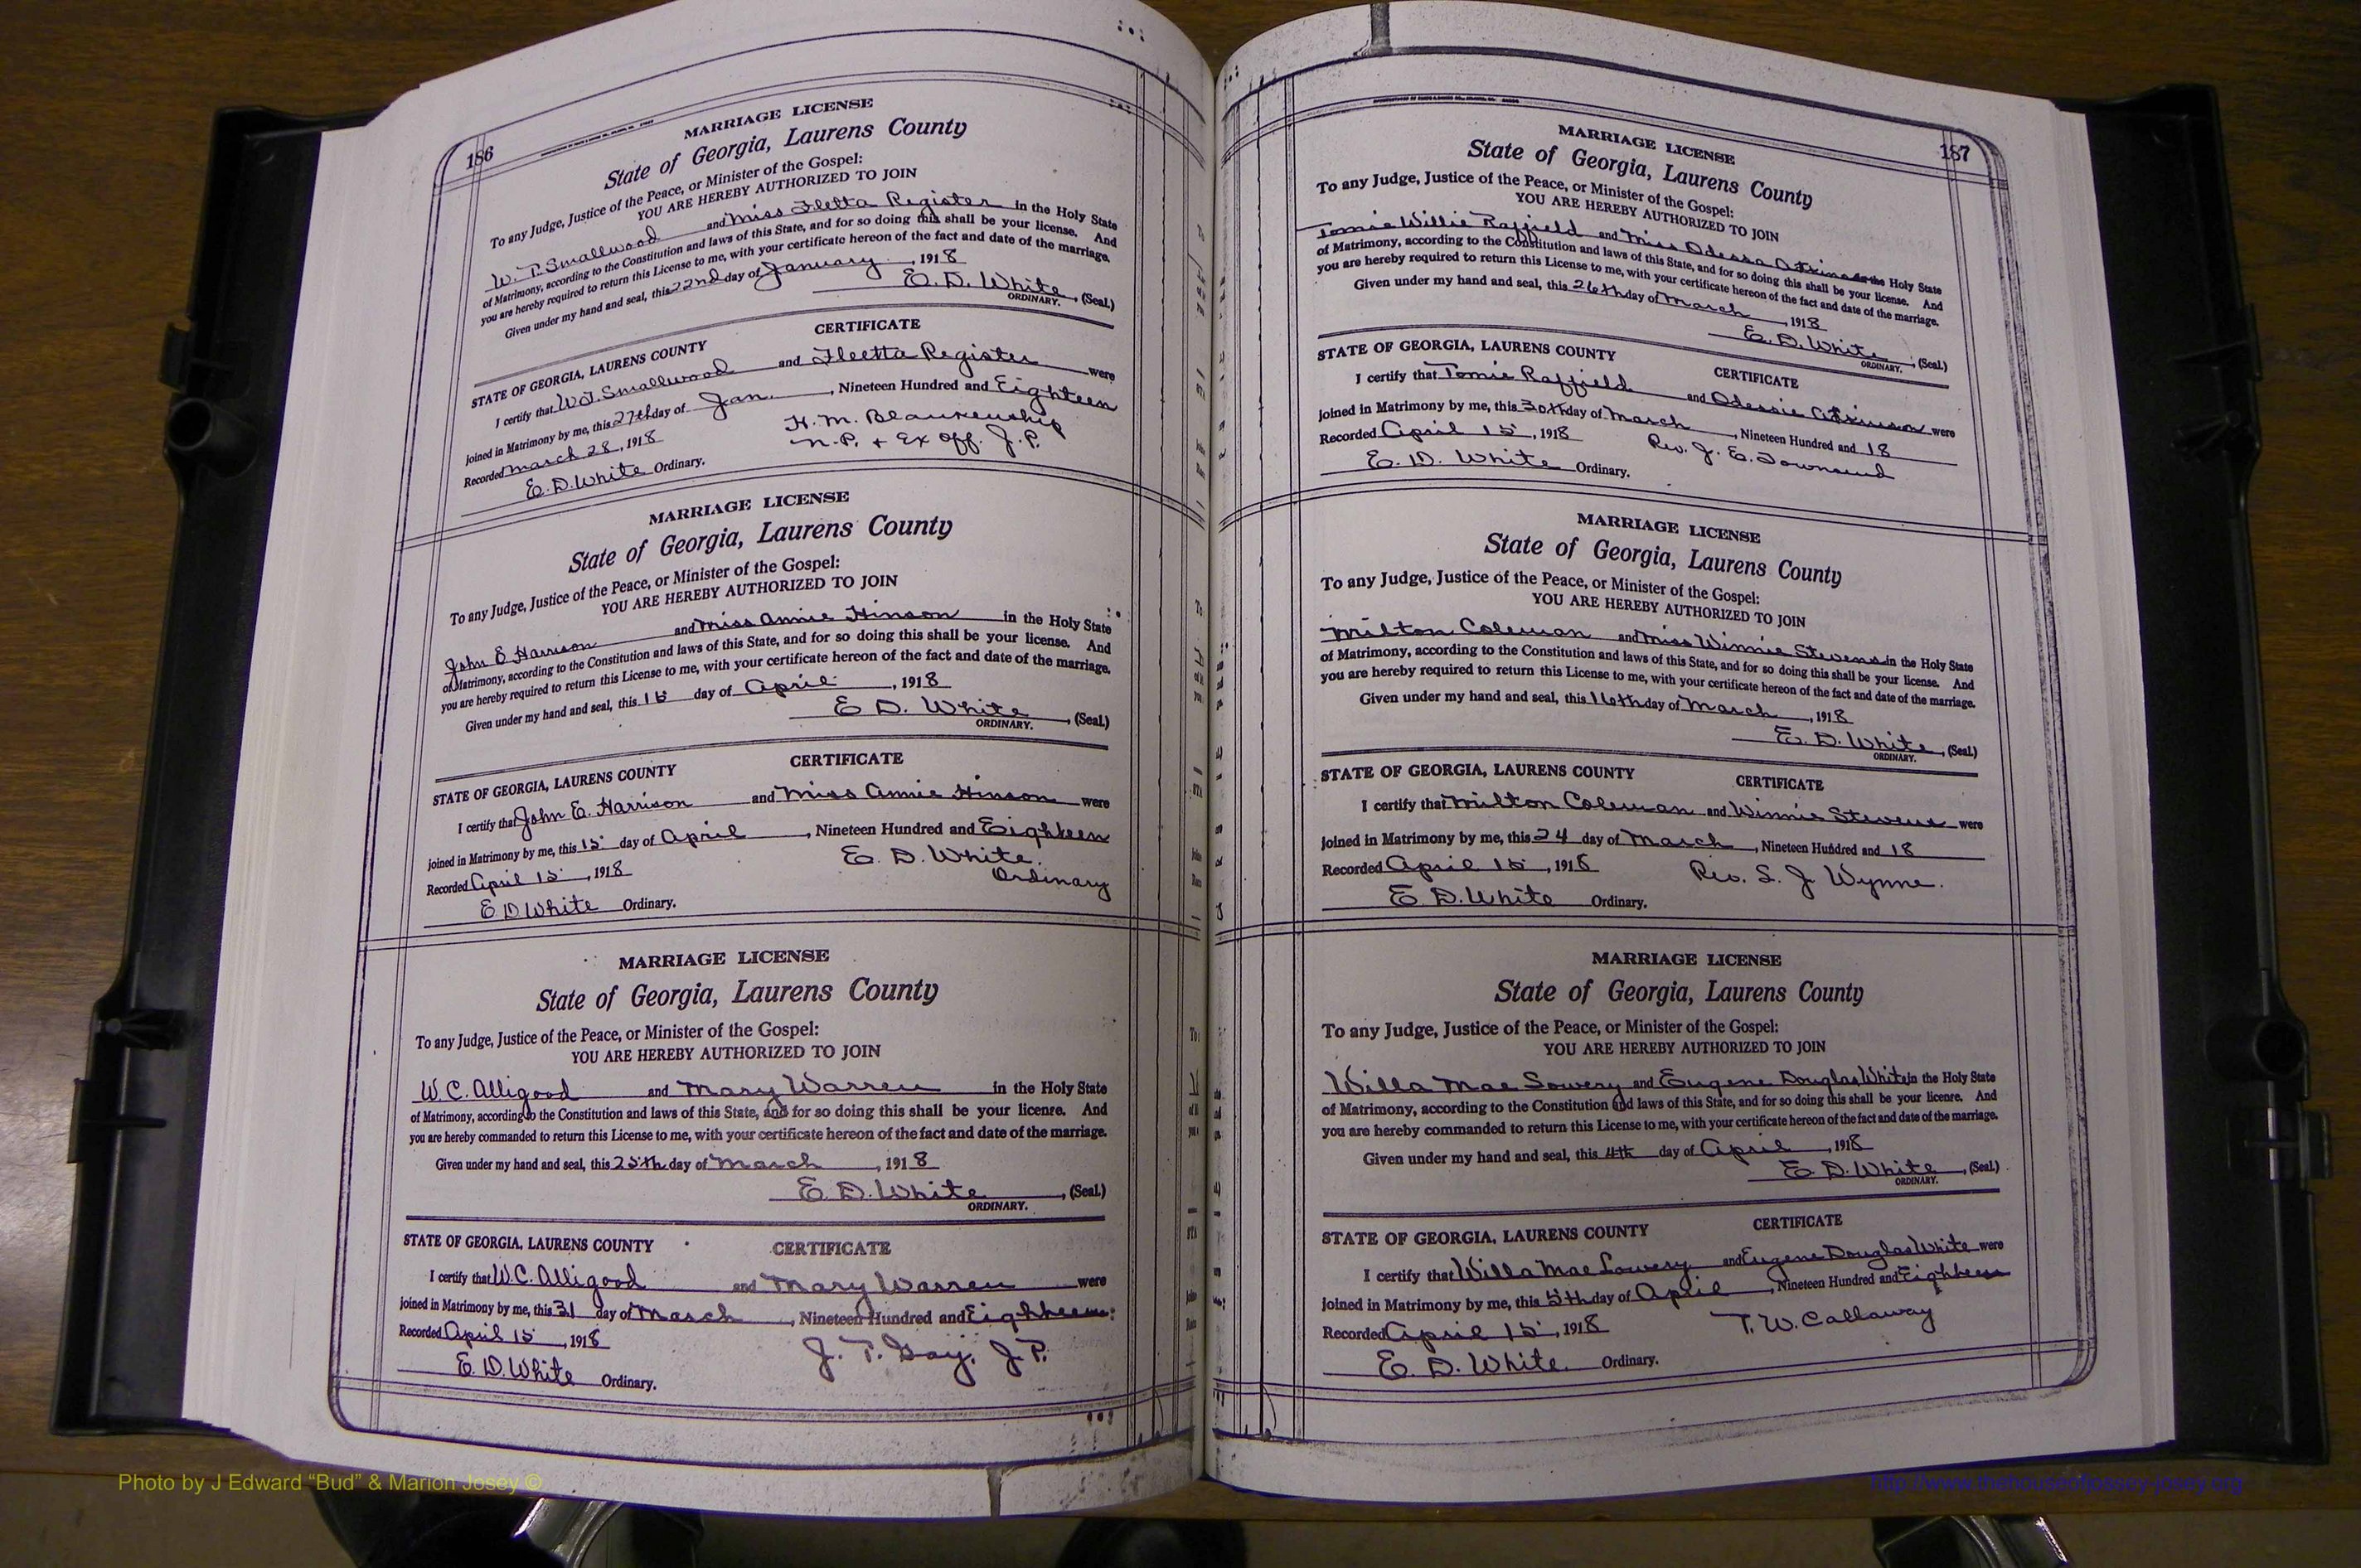 186
MARRIAGE LICENSE
State of Georgia, Laurens County
To any Judge, Justice of the Peace, or Minister of the Gospel:
YOU ARE HEREBY AUTHORIZED TO JOIN
W. T. Smallwood and Miss Fletta Register in the Holy State
of Matrimony, according to the Constitution and laws of this State, and for so doing this shall be your license. And
you are hereby required to return this License to me, with your certificate hereon of the fact and date of the marriage.
Given under my hand and seal, this 22nd day of January, 1918
E. D. White, (Seal.)
ORDINARY.
CERTIFICATE
STATE OF GEORGIA, LAURENS COUNTY
I certify that W.T. Smallwood and Fleetta Register were
joined in Matrimony by me, this 27th day of Jan., Nineteen Hundred and Eighteen
Recorded March 28, 1918 H. M. Blankenship
E. D. White Ordinary. N. P. + Ex off. J. P.
MARRIAGE LICENSE
State of Georgia, Laurens County
To any Judge, Justice of the Peace, or Minister of the Gospel:
YOU ARE HEREBY AUTHORIZED TO JOIN
John E Harrison and Miss Annie Hinson in the Holy State
of Matrimony, according to the Constitution and laws of this State, and for so doing this shall be your license. And
you are hereby required to return this License to me, with your certificate hereon of the fact and date of the marriage.
Given under my hand and seal, this 15 day of April, 1918
E. D. White, (Seal.)
ORDINARY.
CERTIFICATE
STATE OF GEORGIA, LAURENS COUNTY
I certify that John E. Harrison and Miss Annie Hinson were
joined in Matrimony by me, this 15 day of April, Nineteen Hundred and Eighteen
Recorded April 15, 1918 E. D. White.
Ordinary
E D White Ordinary.
MARRIAGE LICENSE
State of Georgia, Laurens County
To any Judge, Justice of the Peace, or Minister of the Gospel:
YOU ARE HEREBY AUTHORIZED TO JOIN
W. C. Alligood and Mary Warren in the Holy State
of Matrimony, according to the Constitution and laws of this State, and for so doing this shall be your license. And
you are hereby commanded to return this License to me, with your certificate hereon of the fact and date of the marriage.
Given under my hand and seal, this 25th day of March, 1918
E. D. White, (Seal.)
ORDINARY.
STATE OF GEORGIA, LAURENS COUNTY CERTIFICATE
I certify that W. C. Alligood and Mary Warren were
joined in Matrimony by me, this 31 day of March, Nineteen Hundred and Eighteen
Recorded April 15, 1918 J. T. Gay, J. P.
E. D. White Ordinary.
187
MARRIAGE LICENSE
State of Georgia, Laurens County
To any Judge, Justice of the Peace, or Minister of the Gospel:
YOU ARE HEREBY AUTHORIZED TO JOIN
Tomie Willie Raffield and Miss Odessa Atkinson in the Holy State
of Matrimony, according to the Constitution and laws of this State, and for so doing this shall be your license. And
you are hereby required to return this License to me, with your certificate hereon of the fact and date of the marriage.
Given under my hand and seal, this 26th day of March, 1918
E. D. White, (Seal.)
ORDINARY.
STATE OF GEORGIA, LAURENS COUNTY CERTIFICATE
I certify that Tomie Raffield and Odessie Atkinson were
joined in Matrimony by me, this 30th day of March, Nineteen Hundred and 18
Recorded April 15, 1918 Rev. J. E. Townsend
E. D. White Ordinary.
MARRIAGE LICENSE
State of Georgia, Laurens County
To any Judge, Justice of the Peace, or Minister of the Gospel:
YOU ARE HEREBY AUTHORIZED TO JOIN
Milton Coleman and Miss Winnie Stevens in the Holy State
of Matrimony, according to the Constitution and laws of this State, and for so doing this shall be your license. And
you are hereby required to return this License to me, with your certificate hereon of the fact and date of the marriage.
Given under my hand and seal, this 16th day of March, 1918
E. D. White, (Seal.)
ORDINARY.
STATE OF GEORGIA, LAURENS COUNTY CERTIFICATE
I certify that Milton Coleman and Winnie Stevens were
joined in Matrimony by me, this 24 day of March, Nineteen Hundred and 18
Recorded April 15, 1918 Rev. S. J. Wynne.
E. D. White Ordinary.
MARRIAGE LICENSE
State of Georgia, Laurens County
To any Judge, Justice of the Peace, or Minister of the Gospel:
YOU ARE HEREBY AUTHORIZED TO JOIN
Willa Mae Lowery and Eugene Douglas White in the Holy State
of Matrimony, according to the Constitution and laws of this State, and for so doing this shall be your license. And
you are hereby commanded to return this License to me, with your certificate hereon of the fact and date of the marriage.
Given under my hand and seal, this 4th day of April, 1918
E. D. White, (Seal.)
ORDINARY.
STATE OF GEORGIA, LAURENS COUNTY CERTIFICATE
I certify that Willa Mae Lowery and Eugene Douglas White were
joined in Matrimony by me, this 5th day of April, Nineteen Hundred and Eighteen
Recorded April 15, 1918 T. W. Callaway
E. D. White. Ordinary.
Photo by J Edward “Bud” & Marion Josey ©
http://www.thehouseofjossey-josey.org